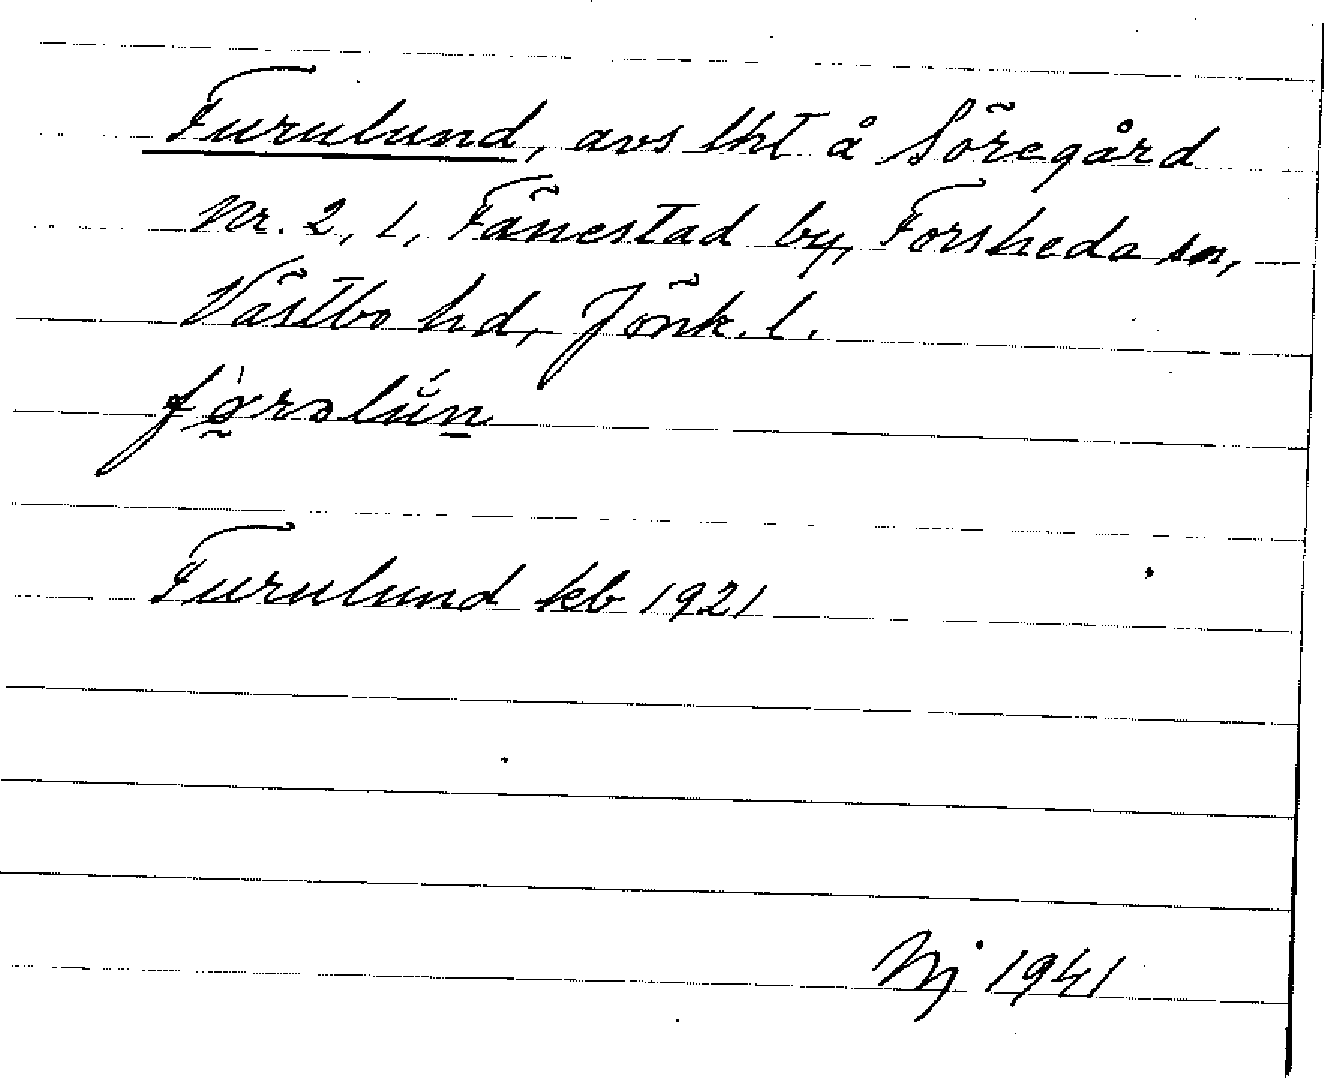 Furulund, avs lht å Söregård
Nr. 2, 1, Fänestad by, Forsheda sn,
Västbo hd, Jönk. l.
Furulund kb 1921
Nj 1941